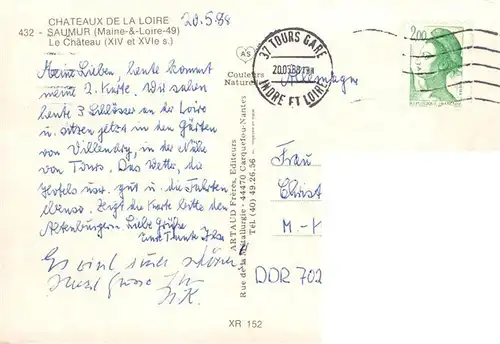 CHATEAUX DE LA LOIRE
432 - SAUMUR (Maine-&-Loire-49)
Le Château (XIV et XVIe s.)
20.5.88
Meine Lieben, heute kommt
meine 2. Karte. Wir sahen
heute 3 Schlösser an der Loire
u. sitzen jetzt in den Gärten
von Villandry, in der Nähe
von Tours. Das Wetter, die
Hotels usw. gut u. die Fahrten
ebenso. Zeigt die Karte bitte den
Altenburgern. Liebe Grüße
Eure Tante Ilse
Es wird immer schöner!
H.K.
Couleurs
Naturelles
ARTAUD Frères, Editeurs
Rue de la Métallurgie - 44470 Carquefou-Nantes
Tél. (40) 49.26.56
XR 152
37 TOURS GARE
INDRE ET LOIRE
2,00
REPUBLIQUE FRANÇAISE
Allemagne
Frau
Christ
DDR 702